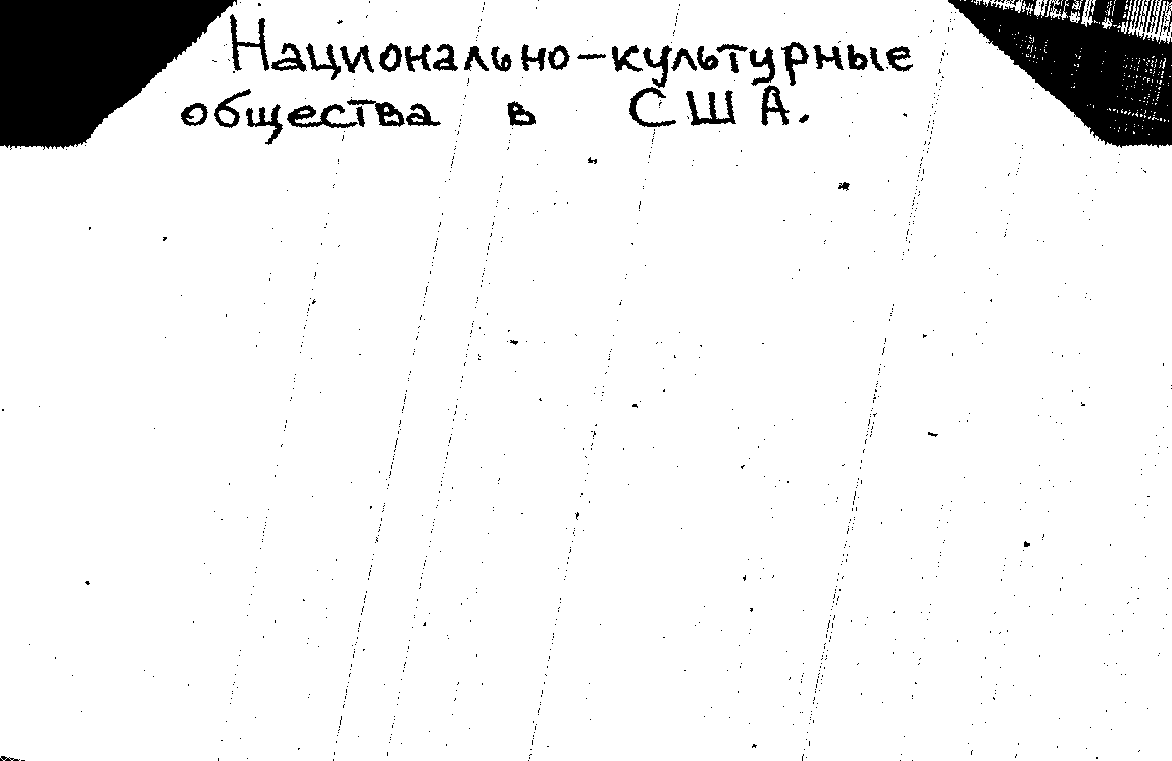 Национально-культурные
общества в США.